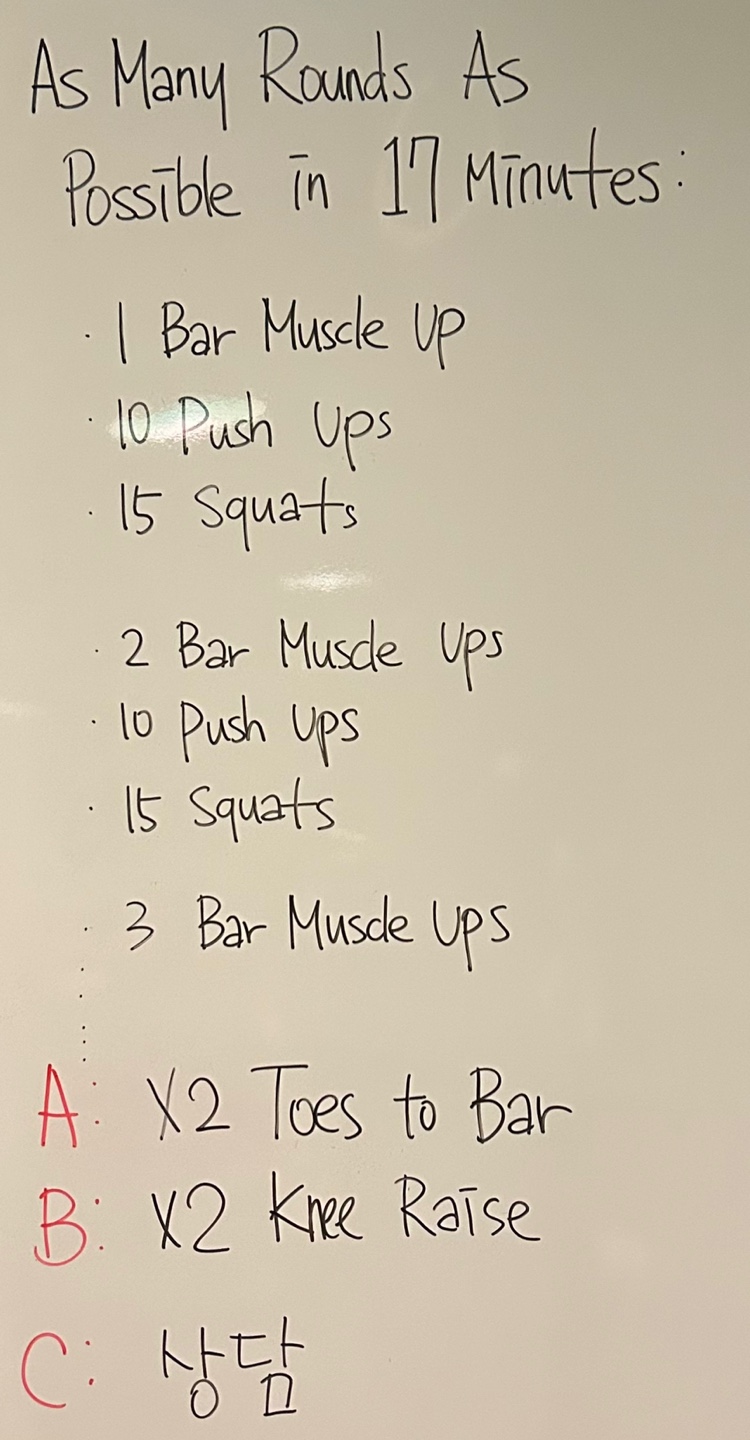 As Many Rounds As
Possible in 17 Minutes:
· 1 Bar Muscle Up
· 10 Push Ups
· 15 Squats
· 2 Bar Muscle Ups
· 10 Push Ups
· 15 Squats
· 3 Bar Muscle Ups
A: X2 Toes to Bar
B: X2 Knee Raise
C: 상담